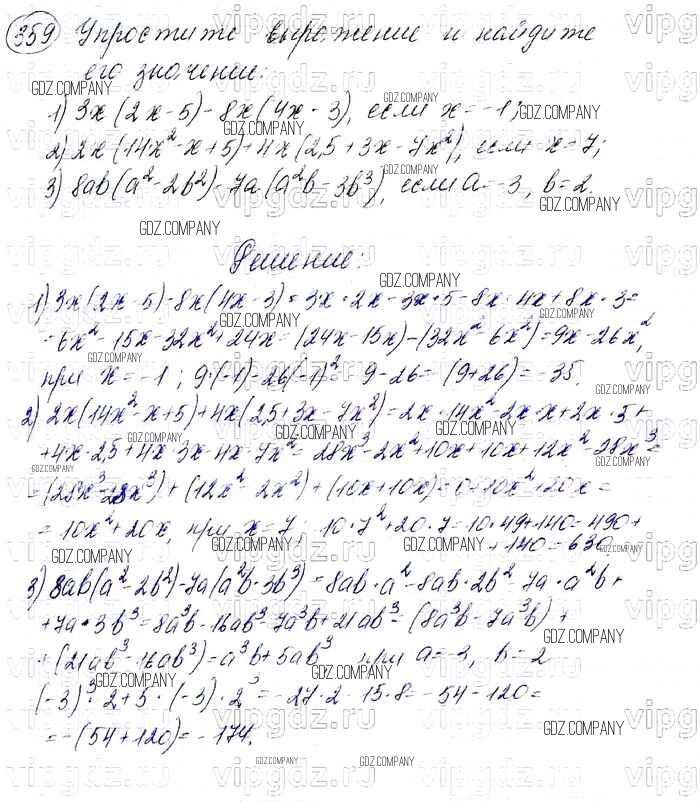 359 Упростите выражение и найдите
его значение:
1) 3x(2x-5)-8x(4x-3), если x=-1;
2) 2x(14x²-x+5)+4x(2,5+3x-7x²), если x=7;
3) 8ab(a²-2b²)-7a(a²b-3b³), если a=-3, b=2.
Решение:
1) 3x(2x-5)-8x(4x-3)=3x·2x-3x·5-8x·4x+8x·3=
=6x²-15x-32x²+24x=(24x-15x)-(32x²-6x²)=9x-26x²,
при x=-1; 9·(-1)-26(-1)²=-9-26=-(9+26)=-35.
2) 2x(14x²-x+5)+4x(2,5+3x-7x²)=2x·14x²-2x·x+2x·5+
+4x·2,5+4x·3x-4x·7x²=28x³-2x²+10x+10x+12x²-28x³=
=(28x³-28x³)+(12x²-2x²)+(10x+10x)=0+10x²+20x=
=10x²+20x, при x=7; 10·7²+20·7=10·49+140=490+
+140=630
3) 8ab(a²-2b²)-7a(a²b-3b³)=8ab·a²-8ab·2b²-7a·a²b+
+7a·3b³=8a³b-16ab³-7a³b+21ab³=(8a³b-7a³b)+
+(21ab³-16ab³)=a³b+5ab³ при a=-3, b=2
(-3)³·2+5·(-3)·2³=-27·2-15·8=-54-120=
=-(54+120)=-174.